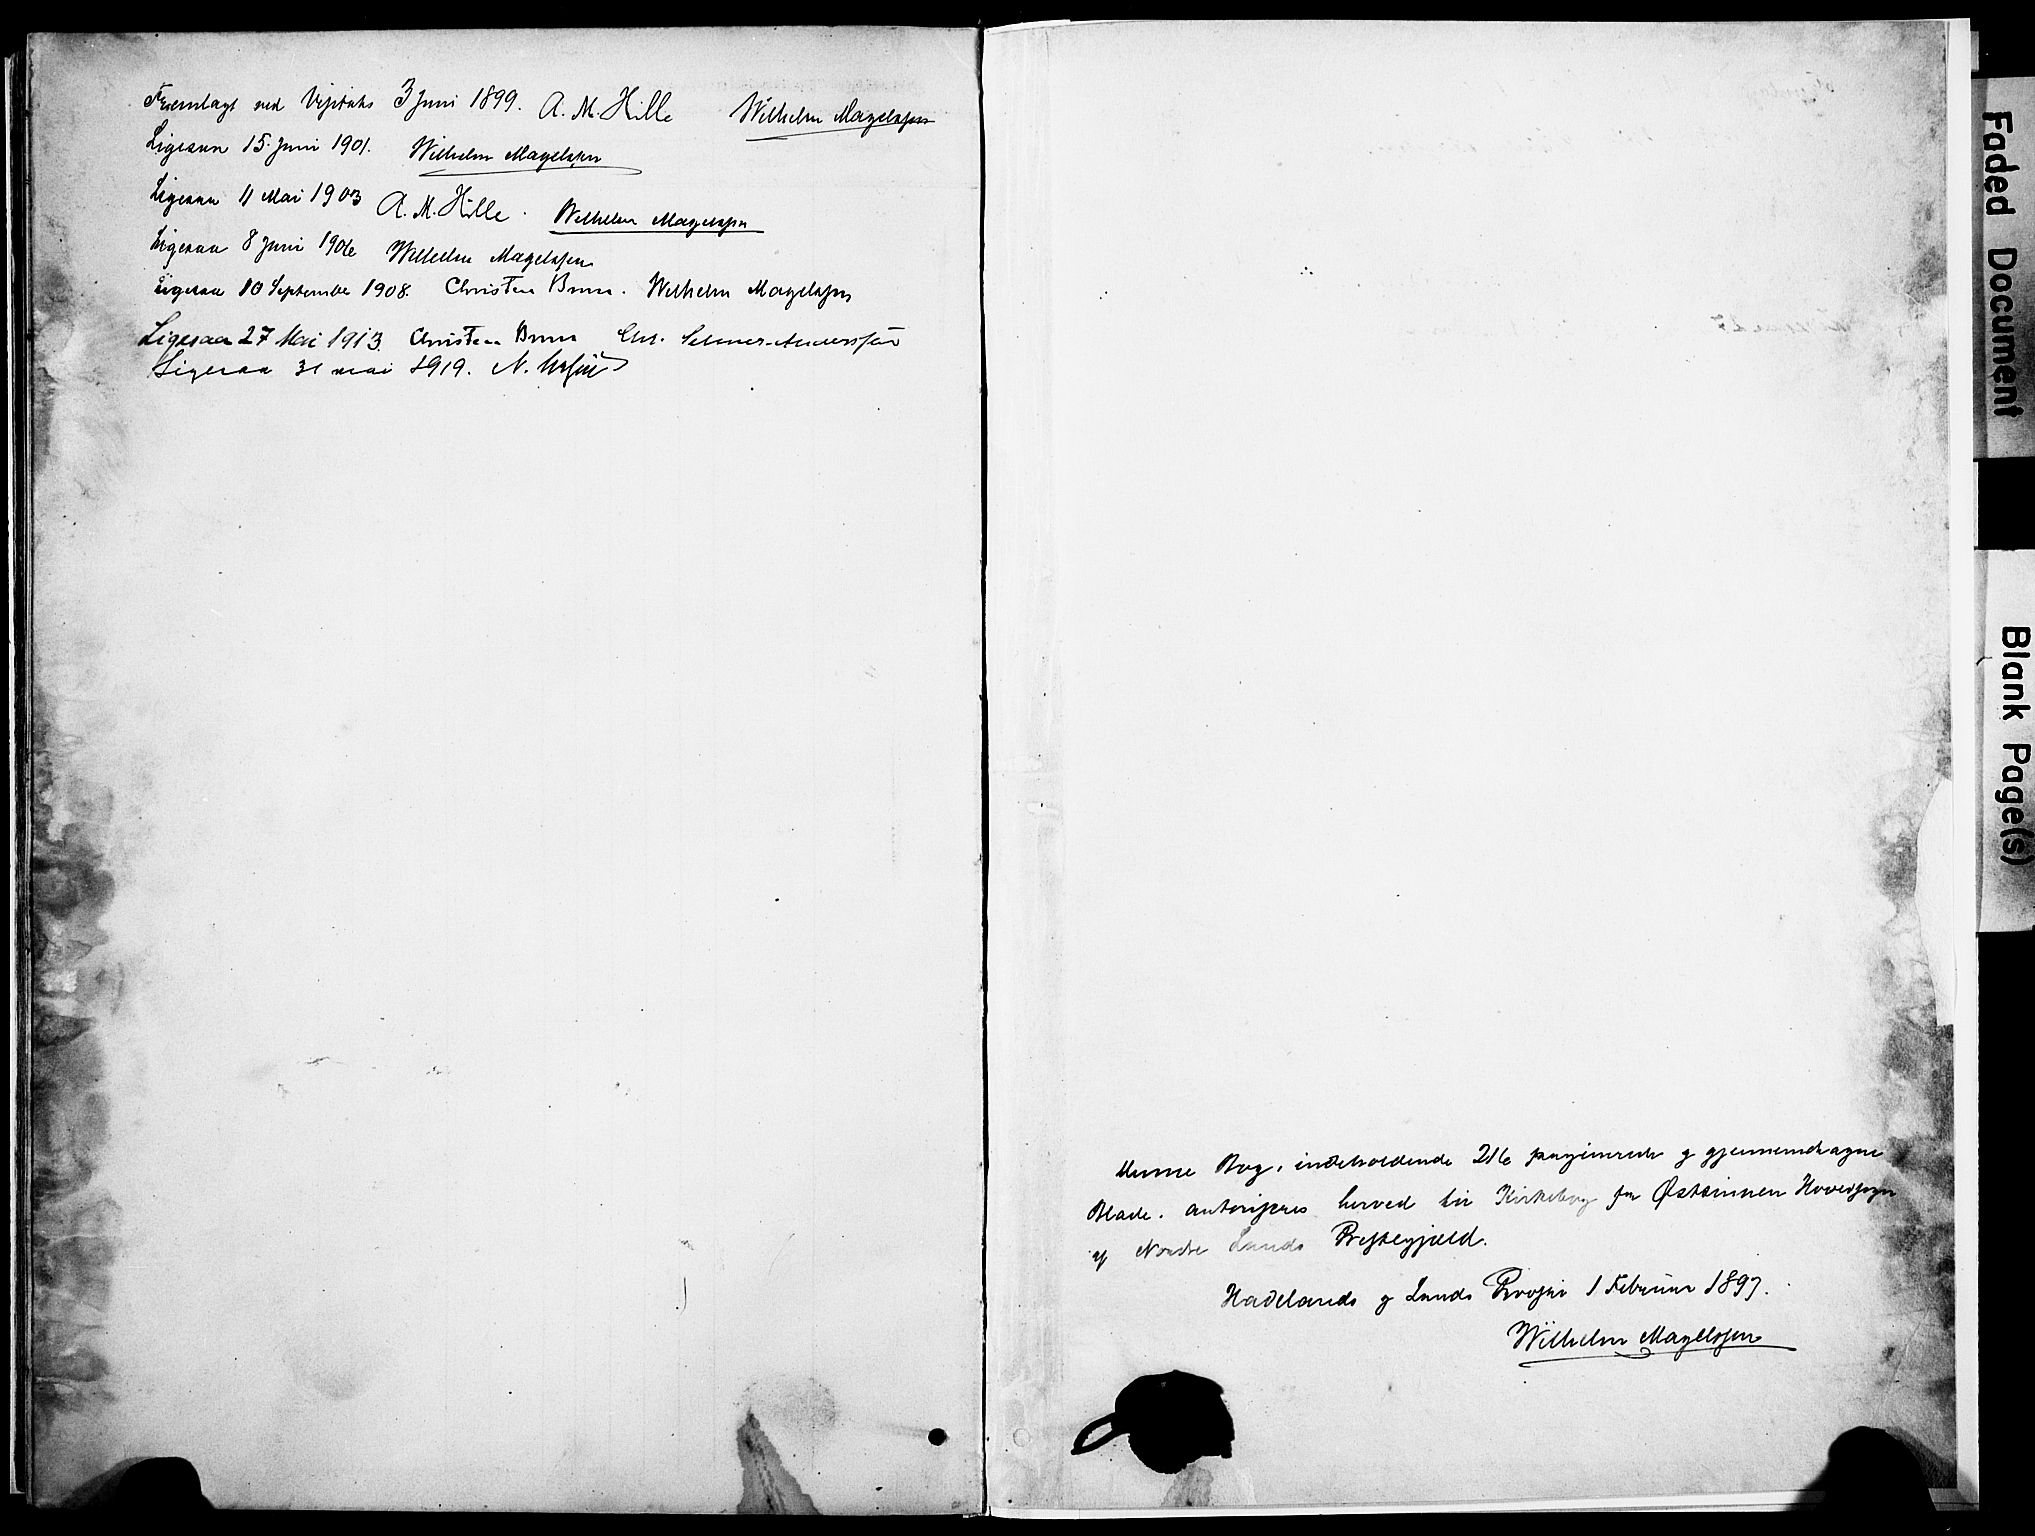 Fremlagt ved Visitats 3 Juni 1899. A. M. Hille Wilhelm Magelssen
Ligesaa 15. Juni 1901. Wilhelm Magelssen
Ligesaa 11 Mai 1903 A. M. Hille. Wilhelm Magelssen
Ligesaa 8 Juni 1906 Wilhelm Magelssen
Ligesaa 10 September 1908. Christen Brun. Wilhelm Magelssen
Ligesaa 27 Mai 1913. Christen Brun Chr.
Ligesaa 31 mai 1919. N.
Denne Bog, indeholdende 216 paginerede og gjennemdragne
Blade. autoriseres herved til Kirkebog for Østsinnen Hovedsogn
af Nordre Lands Præstegjæld.
Hadelands og Lands Provsti 1 Februar 1897.
Wilhelm Magelssen
Faded Document
Blank Page(s)